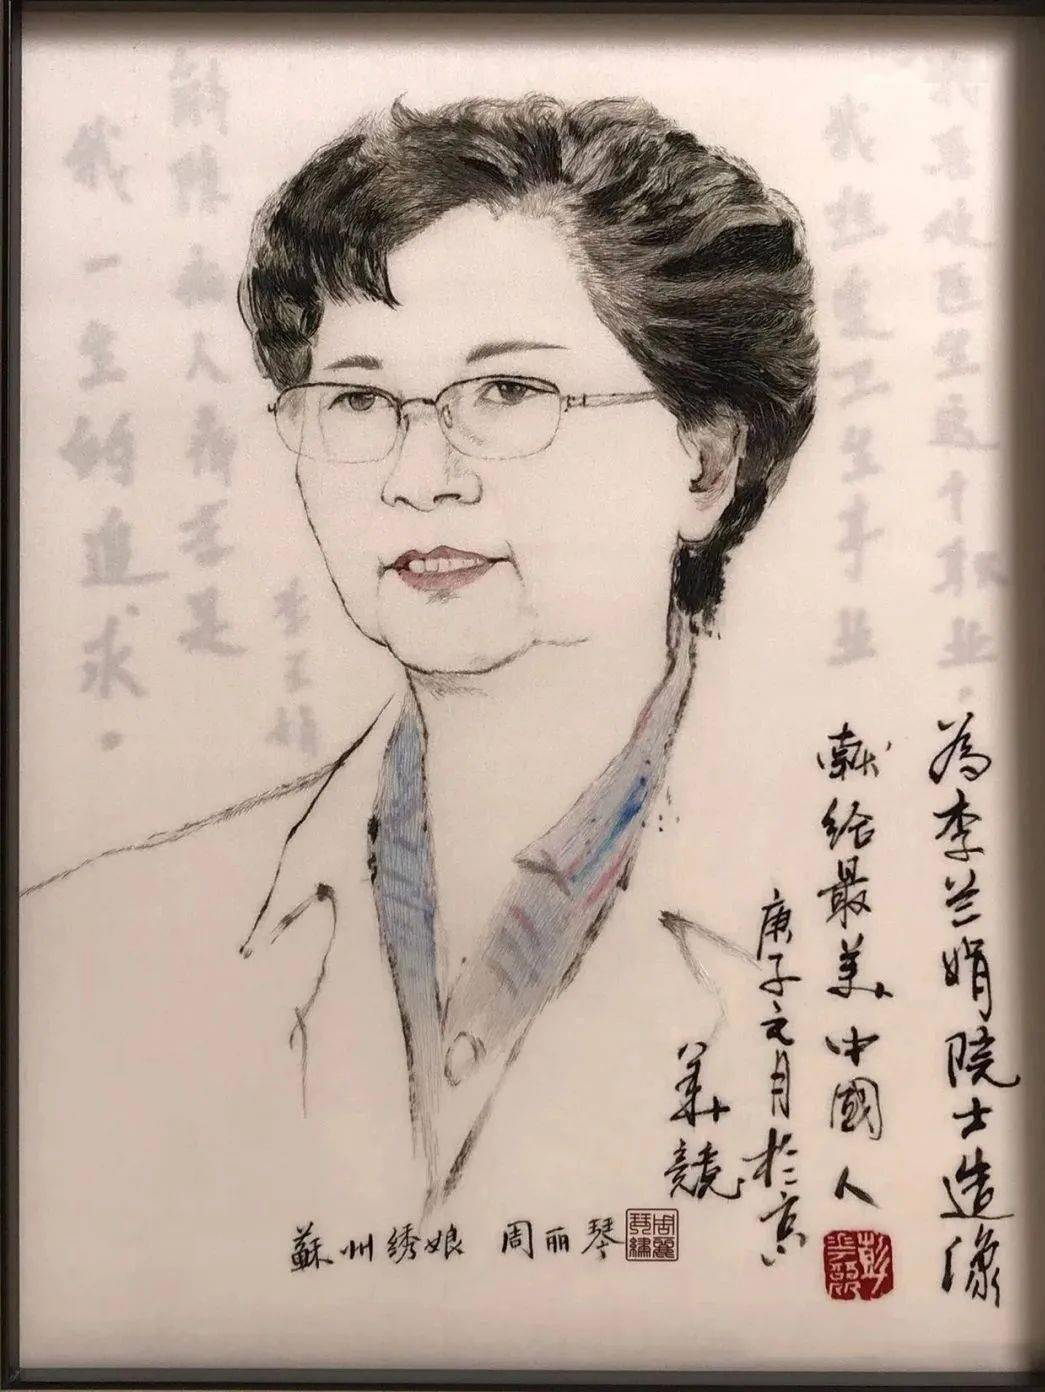 我喜欢医生这个职业。
我热爱卫生事业
解除病人痛苦是
我一生的追求。
李兰娟
為李兰娟院士造像
献给最美中國人
庚子元月於京
華競
蘇州绣娘 周丽琴
周麗琴繡